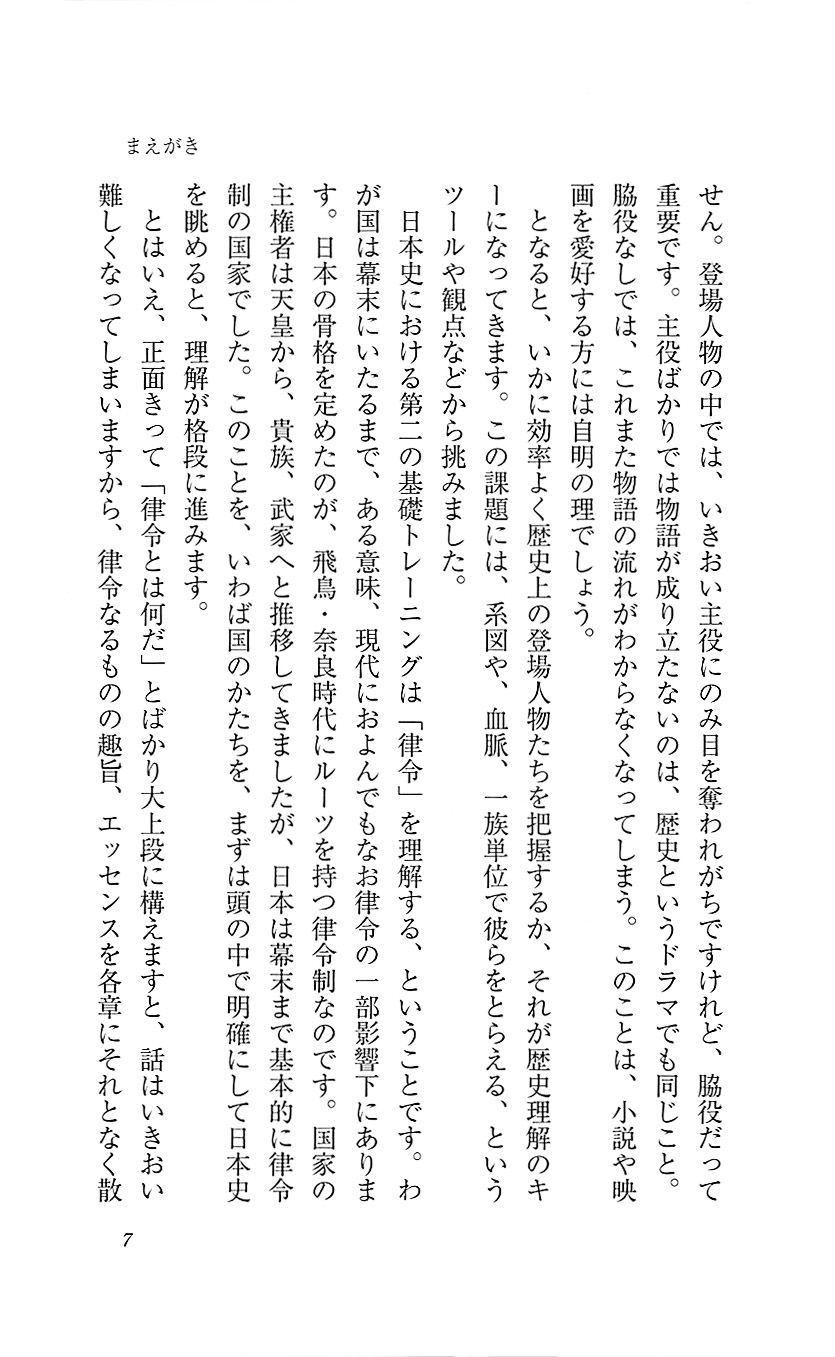 まえがき
せん。登場人物の中では、いきおい主役にのみ目を奪われがちですけれど、脇役だって
重要です。主役ばかりでは物語が成り立たないのは、歴史というドラマでも同じこと。
脇役なしでは、これまた物語の流れがわからなくなってしまう。このことは、小説や映
画を愛好する方には自明の理でしょう。
となると、いかに効率よく歴史上の登場人物たちを把握するか、それが歴史理解のキ
ーになってきます。この課題には、系図や、血脈、一族単位で彼らをとらえる、という
ツールや観点などから挑みました。
日本史における第二の基礎トレーニングは「律令」を理解する、ということです。わ
が国は幕末にいたるまで、ある意味、現代におよんでもなお律令の一部影響下にありま
す。日本の骨格を定めたのが、飛鳥・奈良時代にルーツを持つ律令制なのです。国家の
主権者は天皇から、貴族、武家へと推移してきましたが、日本は幕末まで基本的に律令
制の国家でした。このことを、いわば国のかたちを、まずは頭の中で明確にして日本史
を眺めると、理解が格段に進みます。
とはいえ、正面きって「律令とは何だ」とばかり大上段に構えますと、話はいきおい
難しくなってしまいますから、律令なるものの趣旨、エッセンスを各章にそれとなく散
7